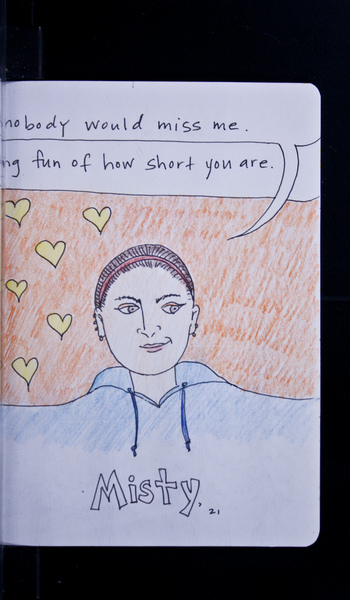 nobody would miss me.
ng fun of how short you are.
Misty, 21